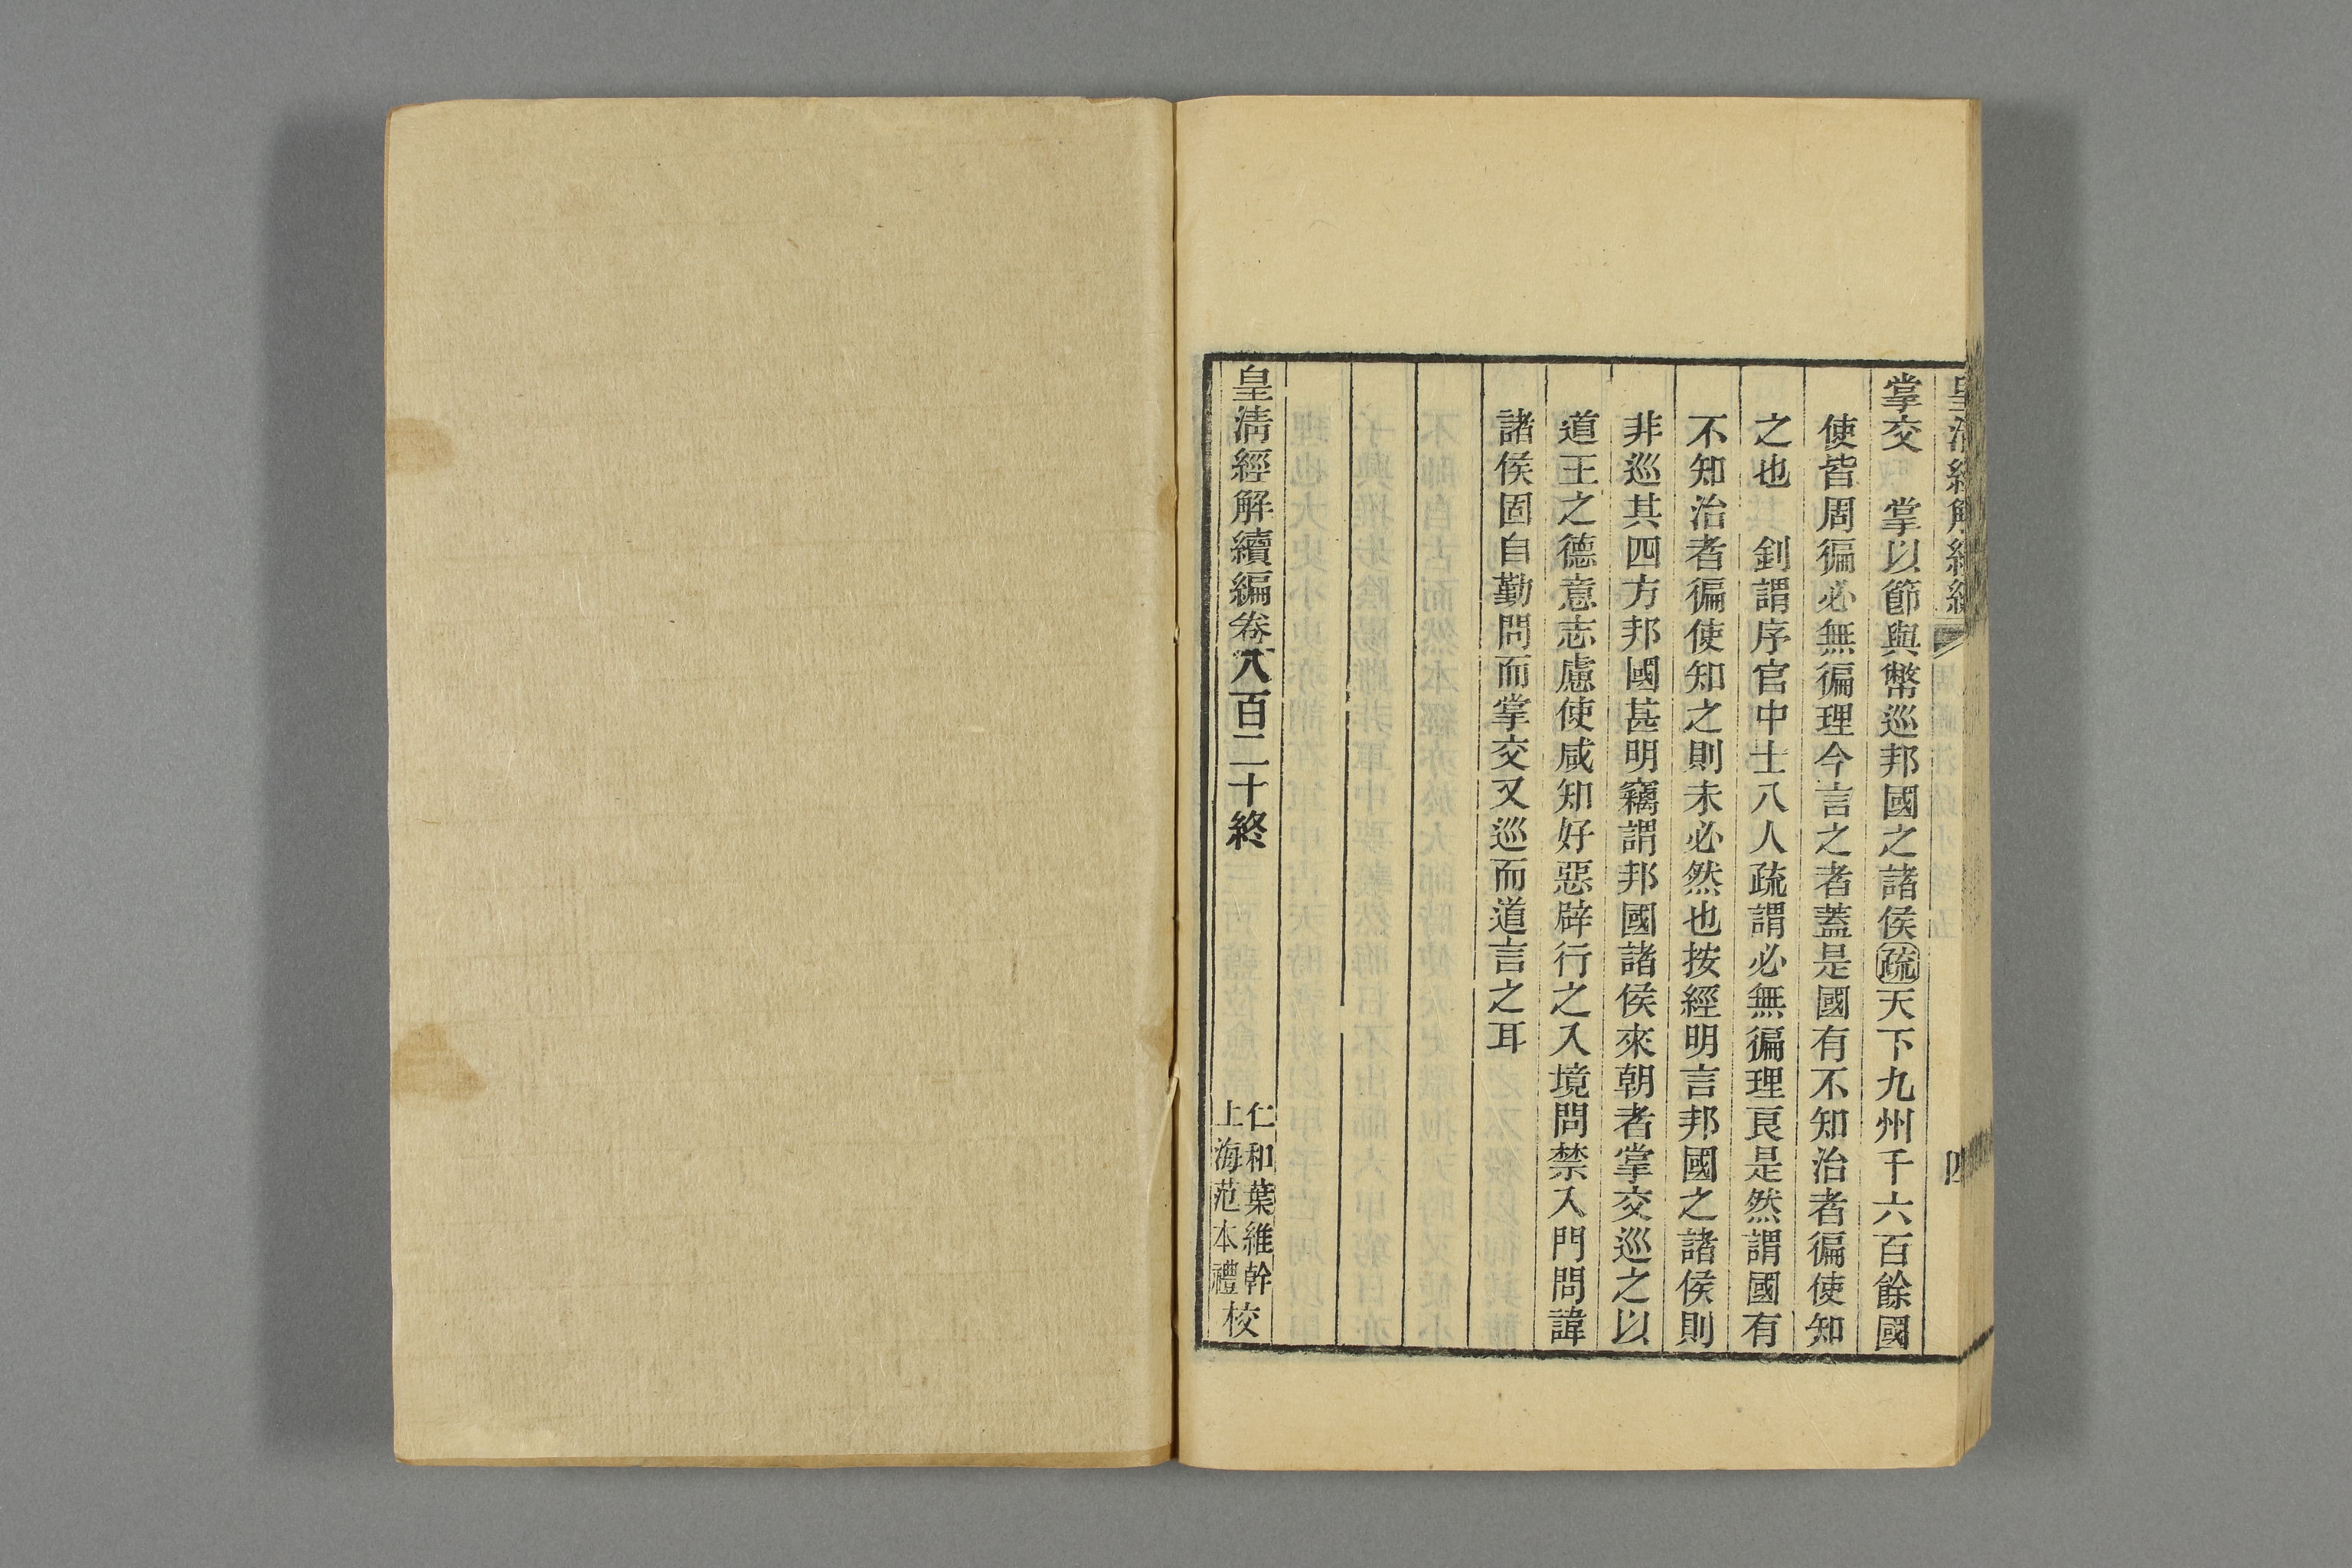 皇清經解續編
掌交　掌以節與幣巡邦國之諸侯疏天下九州千六百餘國
使皆周徧必無徧理今言之者蓋是國有不知治者徧使知
之也　釗謂序官中士八人疏謂必無徧理良是然謂國有
不知治者徧使知之則未必然也按經明言邦國之諸侯則
非巡其四方邦國甚明竊謂邦國諸侯來朝者掌交巡之以
道王之德意志慮使咸知好惡辟行之入境問禁入門問諱
諸侯固自勤問而掌交又巡而道言之耳
皇清經解續編卷八百二十終
仁和葉維幹
上海范本禮校